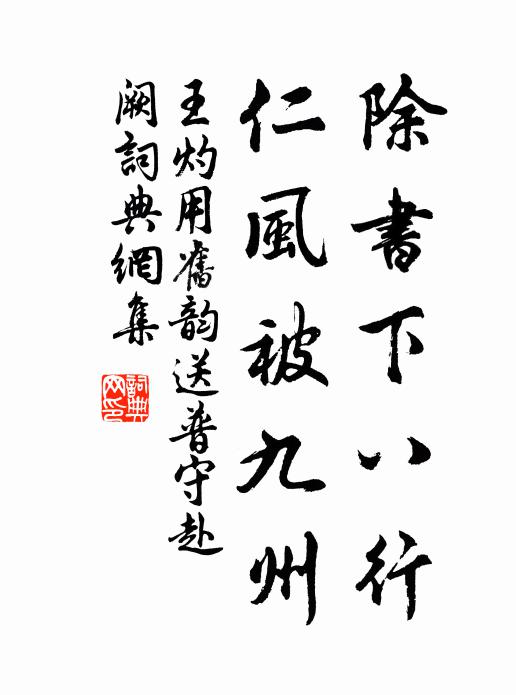 除書下八行
仁風被九州
王灼用舊韵送普守赴
闕詞典網集
詞典网印